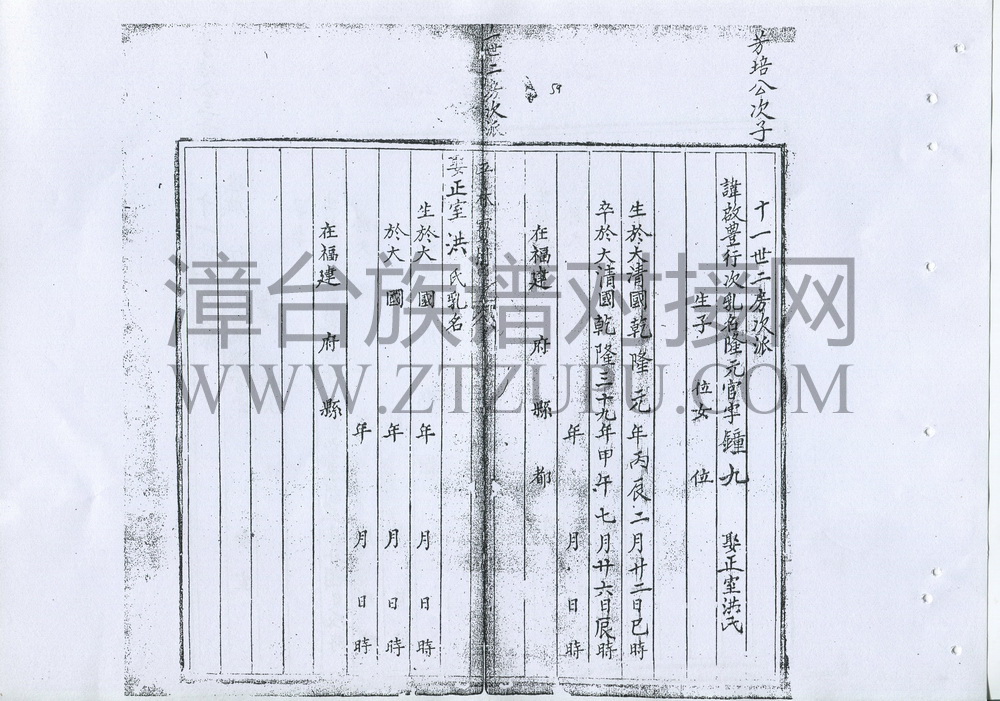 芳培公次子
十一世二房次派
諱啟豊行次乳名隆元官字鐘九 娶正室洪氏
生子 位女 位
生於大清國乾隆元年丙辰二月廿二日巳時
卒於大清國乾隆三十九年甲午七月廿六日辰時
年 月 日 時
在福建 府 縣 都
59
一世二房次派
娶正室洪氏乳名
生於大 國 年 月 日 時
於大 國 年 月 日 時
年 月 日 時
在福建 府 縣
漳台族谱对接网
WWW.ZTZUPU.COM